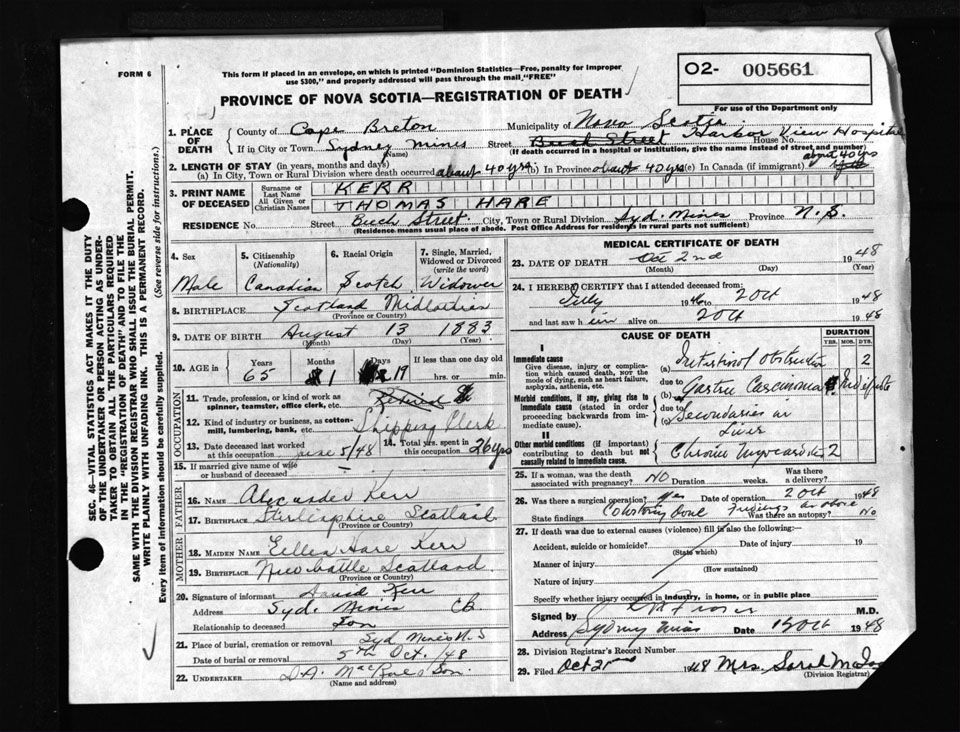 FORM 6
This form if placed in an envelope, on which is printed "Dominion Statistics—Free, penalty for improper
use $300," and properly addressed will pass through the mail "FREE"
PROVINCE OF NOVA SCOTIA—REGISTRATION OF DEATH
O2- 005661
For use of the Department only
1. PLACE OF DEATH
County of Cape Breton Municipality of Nova Scotia
If in City or Town Sydney Mines Street Harbor View Hospital House No.
(Name) (If death occurred in a hospital or institution, give the name instead of street and number)
2. LENGTH OF STAY (in years, months and days)
(a) In City, Town or Rural Division where death occurred about 40 yrs (b) In Province about 40 yrs (c) In Canada (if immigrant) about 40 yrs
3. PRINT NAME OF DECEASED
Surname or Last Name KERR
All Given or Christian Names THOMAS HARE
RESIDENCE No. Street Beech Street City, Town or Rural Division Syd. Mines Province N.S.
(Residence means usual place of abode. Post Office Address for residents in rural parts not sufficient)
4. Sex Male
5. Citizenship (Nationality) Canadian
6. Racial Origin Scotch
7. Single, Married, Widowed or Divorced (write the word) Widower
8. BIRTHPLACE Scotland Midlothian
(Province or Country)
9. DATE OF BIRTH August 13 1883
(Month) (Day) (Year)
10. AGE in Years 65 Months 1 Days 19 If less than one day old hrs. or min.
OCCUPATION
11. Trade, profession, or kind of work as spinner, teamster, office clerk, etc. Retired
12. Kind of industry or business, as cotton-mill, lumbering, bank, etc. Shipping Clerk
13. Date deceased last worked at this occupation June 5/48
14. Total yrs. spent in this occupation 26 yrs
15. If married give name of wife or husband of deceased
FATHER
16. Name Alexander Kerr
17. BIRTHPLACE Stirlingshire Scotland
(Province or Country)
MOTHER
18. MAIDEN NAME Ellen Hare Kerr
19. BIRTHPLACE Newbattle Scotland
(Province or Country)
20. Signature of informant David Kerr
Address Syd. Mines CB
Relationship to deceased Son
21. Place of burial, cremation or removal Syd Mines N.S
Date of burial or removal 5th Oct. /48
22. UNDERTAKER D.A. MacRae & Son
(Name and address)
MEDICAL CERTIFICATE OF DEATH
23. DATE OF DEATH Oct 2nd 1948
(Month) (Day) (Year)
24. I HEREBY CERTIFY that I attended deceased from:
1946 to 2 Oct 1948
and last saw him alive on 2 Oct 1948
CAUSE OF DEATH DURATION
YRS. MOS. DYS.
I
Immediate cause
Give disease, injury or complication which caused death, not the mode of dying, such as heart failure, asphyxia, asthenia, etc.
(a) Intestinal Obstruction 2
due to
Morbid conditions, if any, giving rise to immediate cause (stated in order proceeding backwards from immediate cause).
(b) Gastric Carcinoma
due to
(c) Secondaries in Liver
II
Other morbid conditions (if important) contributing to death but not causally related to immediate cause.
Chronic Myocarditis 2
25. If a woman, was the death associated with pregnancy? NO Duration weeks. Was there a delivery?
26. Was there a surgical operation? Yes Date of operation 2 Oct 1948
State findings Colostomy done Findings as above Was there an autopsy? No
27. If death was due to external causes (violence) fill in also the following:—
Accident, suicide or homicide? Date of injury 19
(State which)
Manner of injury
(How sustained)
Nature of injury
Specify whether injury occurred in industry, in home, or in public place
Signed by Fraser M.D.
Address Sydney Mines Date Oct 1948
28. Division Registrar's Record Number
29. Filed Oct 1948 Mrs. Sarah
(Division Registrar)
SEC. 46—VITAL STATISTICS ACT MAKES IT THE DUTY
OF THE UNDERTAKER OR PERSON ACTING AS UNDER-
TAKER TO OBTAIN ALL THE PARTICULARS REQUIRED
IN THE "REGISTRATION OF DEATH" AND TO FILE THE
SAME WITH THE DIVISION REGISTRAR WHO SHALL ISSUE THE BURIAL PERMIT.
WRITE PLAINLY WITH UNFADING INK. THIS IS A PERMANENT RECORD.
Every item of information should be carefully supplied. (See reverse side for instructions.)